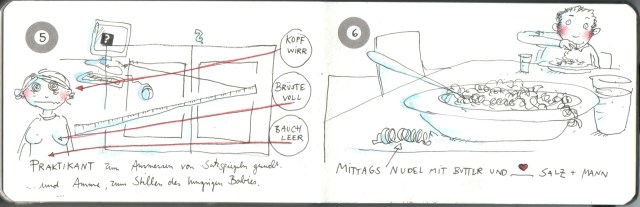 5
?
2
KOPF
WIRR
BRÜSTE
VOLL
BAUCH
LEER
PRAKTIKANT zum Ausmessen von Satzspiegeln gesucht.
...und Amme, zum Stillen des hungrigen Babies.
6
MITTAGS NUDEL MIT BUTTER UND ♥ SALZ + MANN